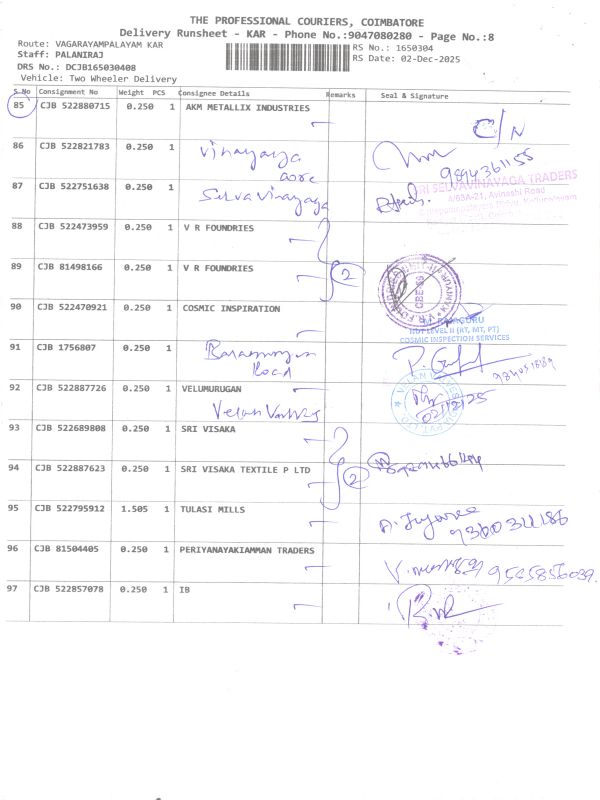 THE PROFESSIONAL COURIERS, COIMBATORE
Delivery Runsheet - KAR - Phone No.:9047080280 - Page No.:8
Route: VAGARAYAMPALAYAM KAR
RS No.: 1650304
Staff: PALANIRAJ
RS Date: 02-Dec-2025
DRS No.: DCJB165030408
Vehicle: Two Wheeler Delivery
S.No Consignment No Weight PCS Consignee Details Remarks Seal & Signature
85 CJB 522880715 0.250 1 AKM METALLIX INDUSTRIES
C/N
86 CJB 522821783 0.250 1 Vinayaga
87 CJB 522751638 0.250 1 Selva Vinayaga
SRI SELVAVINAYAGA TRADERS
4/63A-21, Avinashi Road
88 CJB 522473959 0.250 1 V R FOUNDRIES
89 CJB 81498166 0.250 1 V R FOUNDRIES 2
90 CJB 522470921 0.250 1 COSMIC INSPIRATION
NDT LEVEL II (RT, MT, PT)
COSMIC INSPECTION SERVICES
91 CJB 1756807 0.250 1
Road
92 CJB 522887726 0.250 1 VELUMURUGAN
02/12/25
93 CJB 522689808 0.250 1 SRI VISAKA
94 CJB 522887623 0.250 1 SRI VISAKA TEXTILE P LTD 2
95 CJB 522795912 1.505 1 TULASI MILLS
96 CJB 81504405 0.250 1 PERIYANAYAKIAMMAN TRADERS
97 CJB 522857078 0.250 1 IB